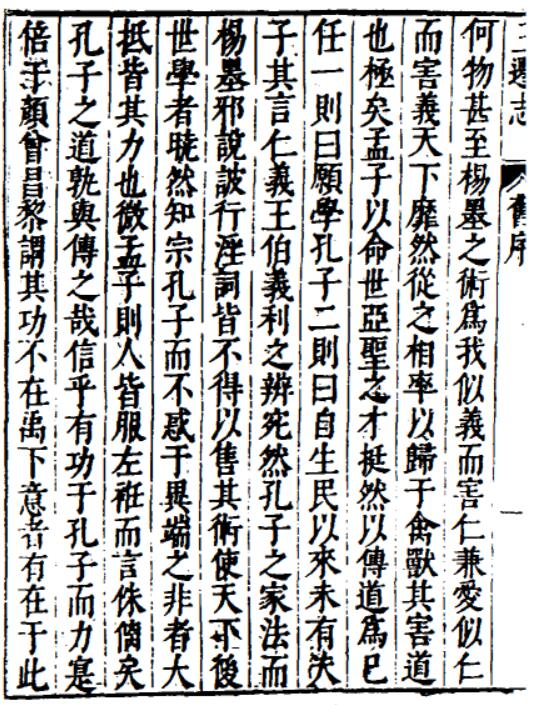 三遷志 舊序
何物甚至楊墨之術爲我似義而害仁兼愛似仁
而害義天下靡然從之相率以歸于禽獸其害道
也極矣孟子以命世亞聖之才挺然以傳道爲己
任一則曰願學孔子二則曰自生民以來未有夫
子其言仁義王伯義利之辨宛然孔子之家法而
楊墨邪說詖行淫詞皆不得以售其術使天下後
世學者曉然知宗孔子而不惑于異端之非者大
抵皆其力也微孟子則人皆服左袵而言侏𠌯矣
孔子之道孰與傳之哉信乎有功于孔子而力寔
倍于顏曾昌黎謂其功不在禹下意者有在于此